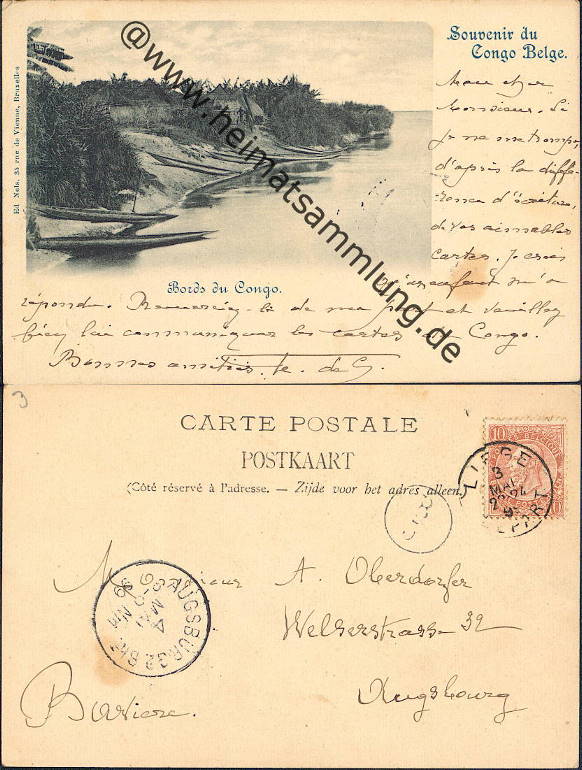 Souvenir du
Congo Belge.
Ed. Nels, 35 rue de Vienne, Bruxelles
@www.heimatsammlung.de
Mon cher
Monsieur. Si
je ne me trompe,
d'après la diffé-
rence d'écriture,
de vos aimables
cartes. Je crois
m'a
Bords du Congo.
répondu. Remerciez-le de ma part et veuillez
bien lui communiquer les cartes du Congo.
Bonnes amitiés de
3
CARTE POSTALE
POSTKAART
(Côté réservé à l'adresse. — Zijde voor het adres alleen.)
10
LIEGE
3
MAI
DEPART
Monsieur A. Oberdorfer
Welserstrasse 32
Augsbourg
Bavière.
AUGSBURG 2 BHF.
4
MAI
NM
99